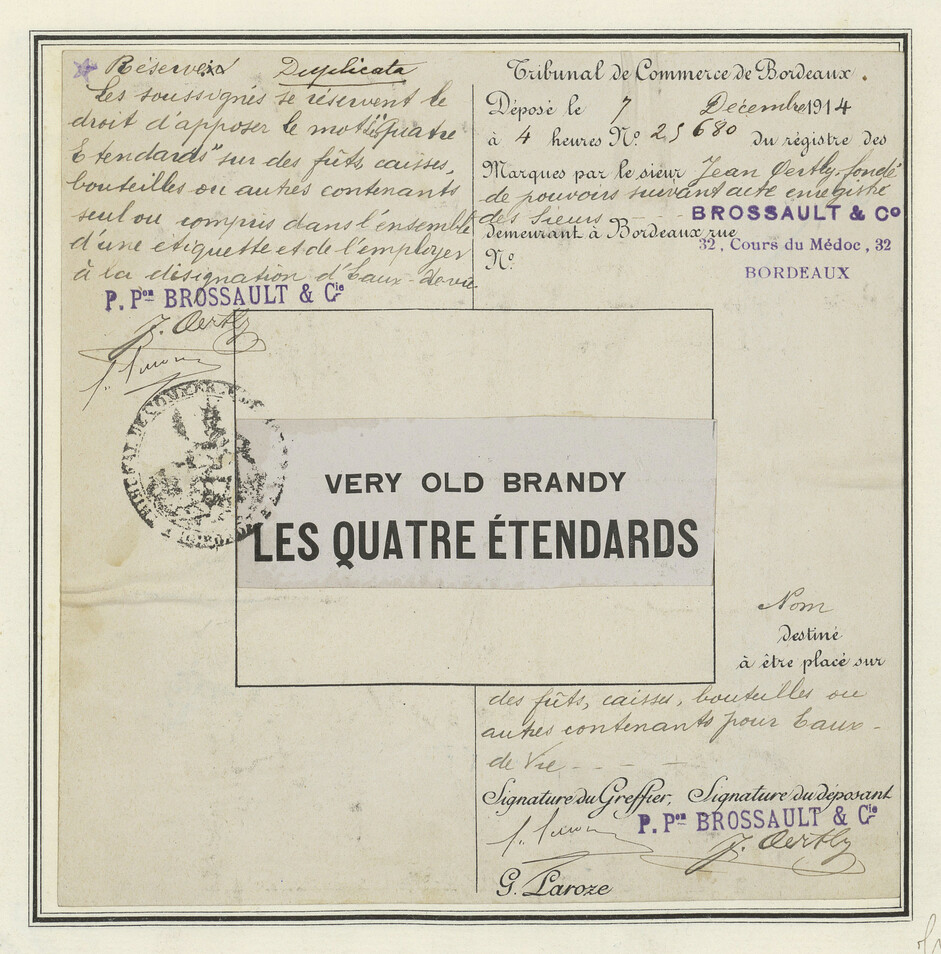 Réserves Duplicata
Les soussignés se réservent le
droit d'apposer le mot "Les Quatre
Etendards" sur des fûts, caisses,
bouteilles ou autres contenants
seul ou compris dans l'ensemble
d'une etiquette et de l'employer
à la désignation d'Eaux-de-vie.
P. Pon BROSSAULT & Cie
J. Oertly
Tribunal de Commerce de Bordeaux.
Déposé le 7 Décembre 1914
à 4 heures No. 25680 du régistre des
Marques par le sieur Jean Oertly, fondé
de pouvoirs suivant acte enregistré
des Sieurs - - - BROSSAULT & Co
demeurant à Bordeaux rue
32, Cours du Médoc, 32
No.
BORDEAUX
VERY OLD BRANDY
LES QUATRE ÉTENDARDS
Nom
destiné
à être placé sur
des fûts, caisses, bouteilles ou
autres contenants pour Eaux-
de Vie - - -
Signature du Greffier, Signature du déposant
P. Pon BROSSAULT & Cie
J. Oertly
G. Laroze